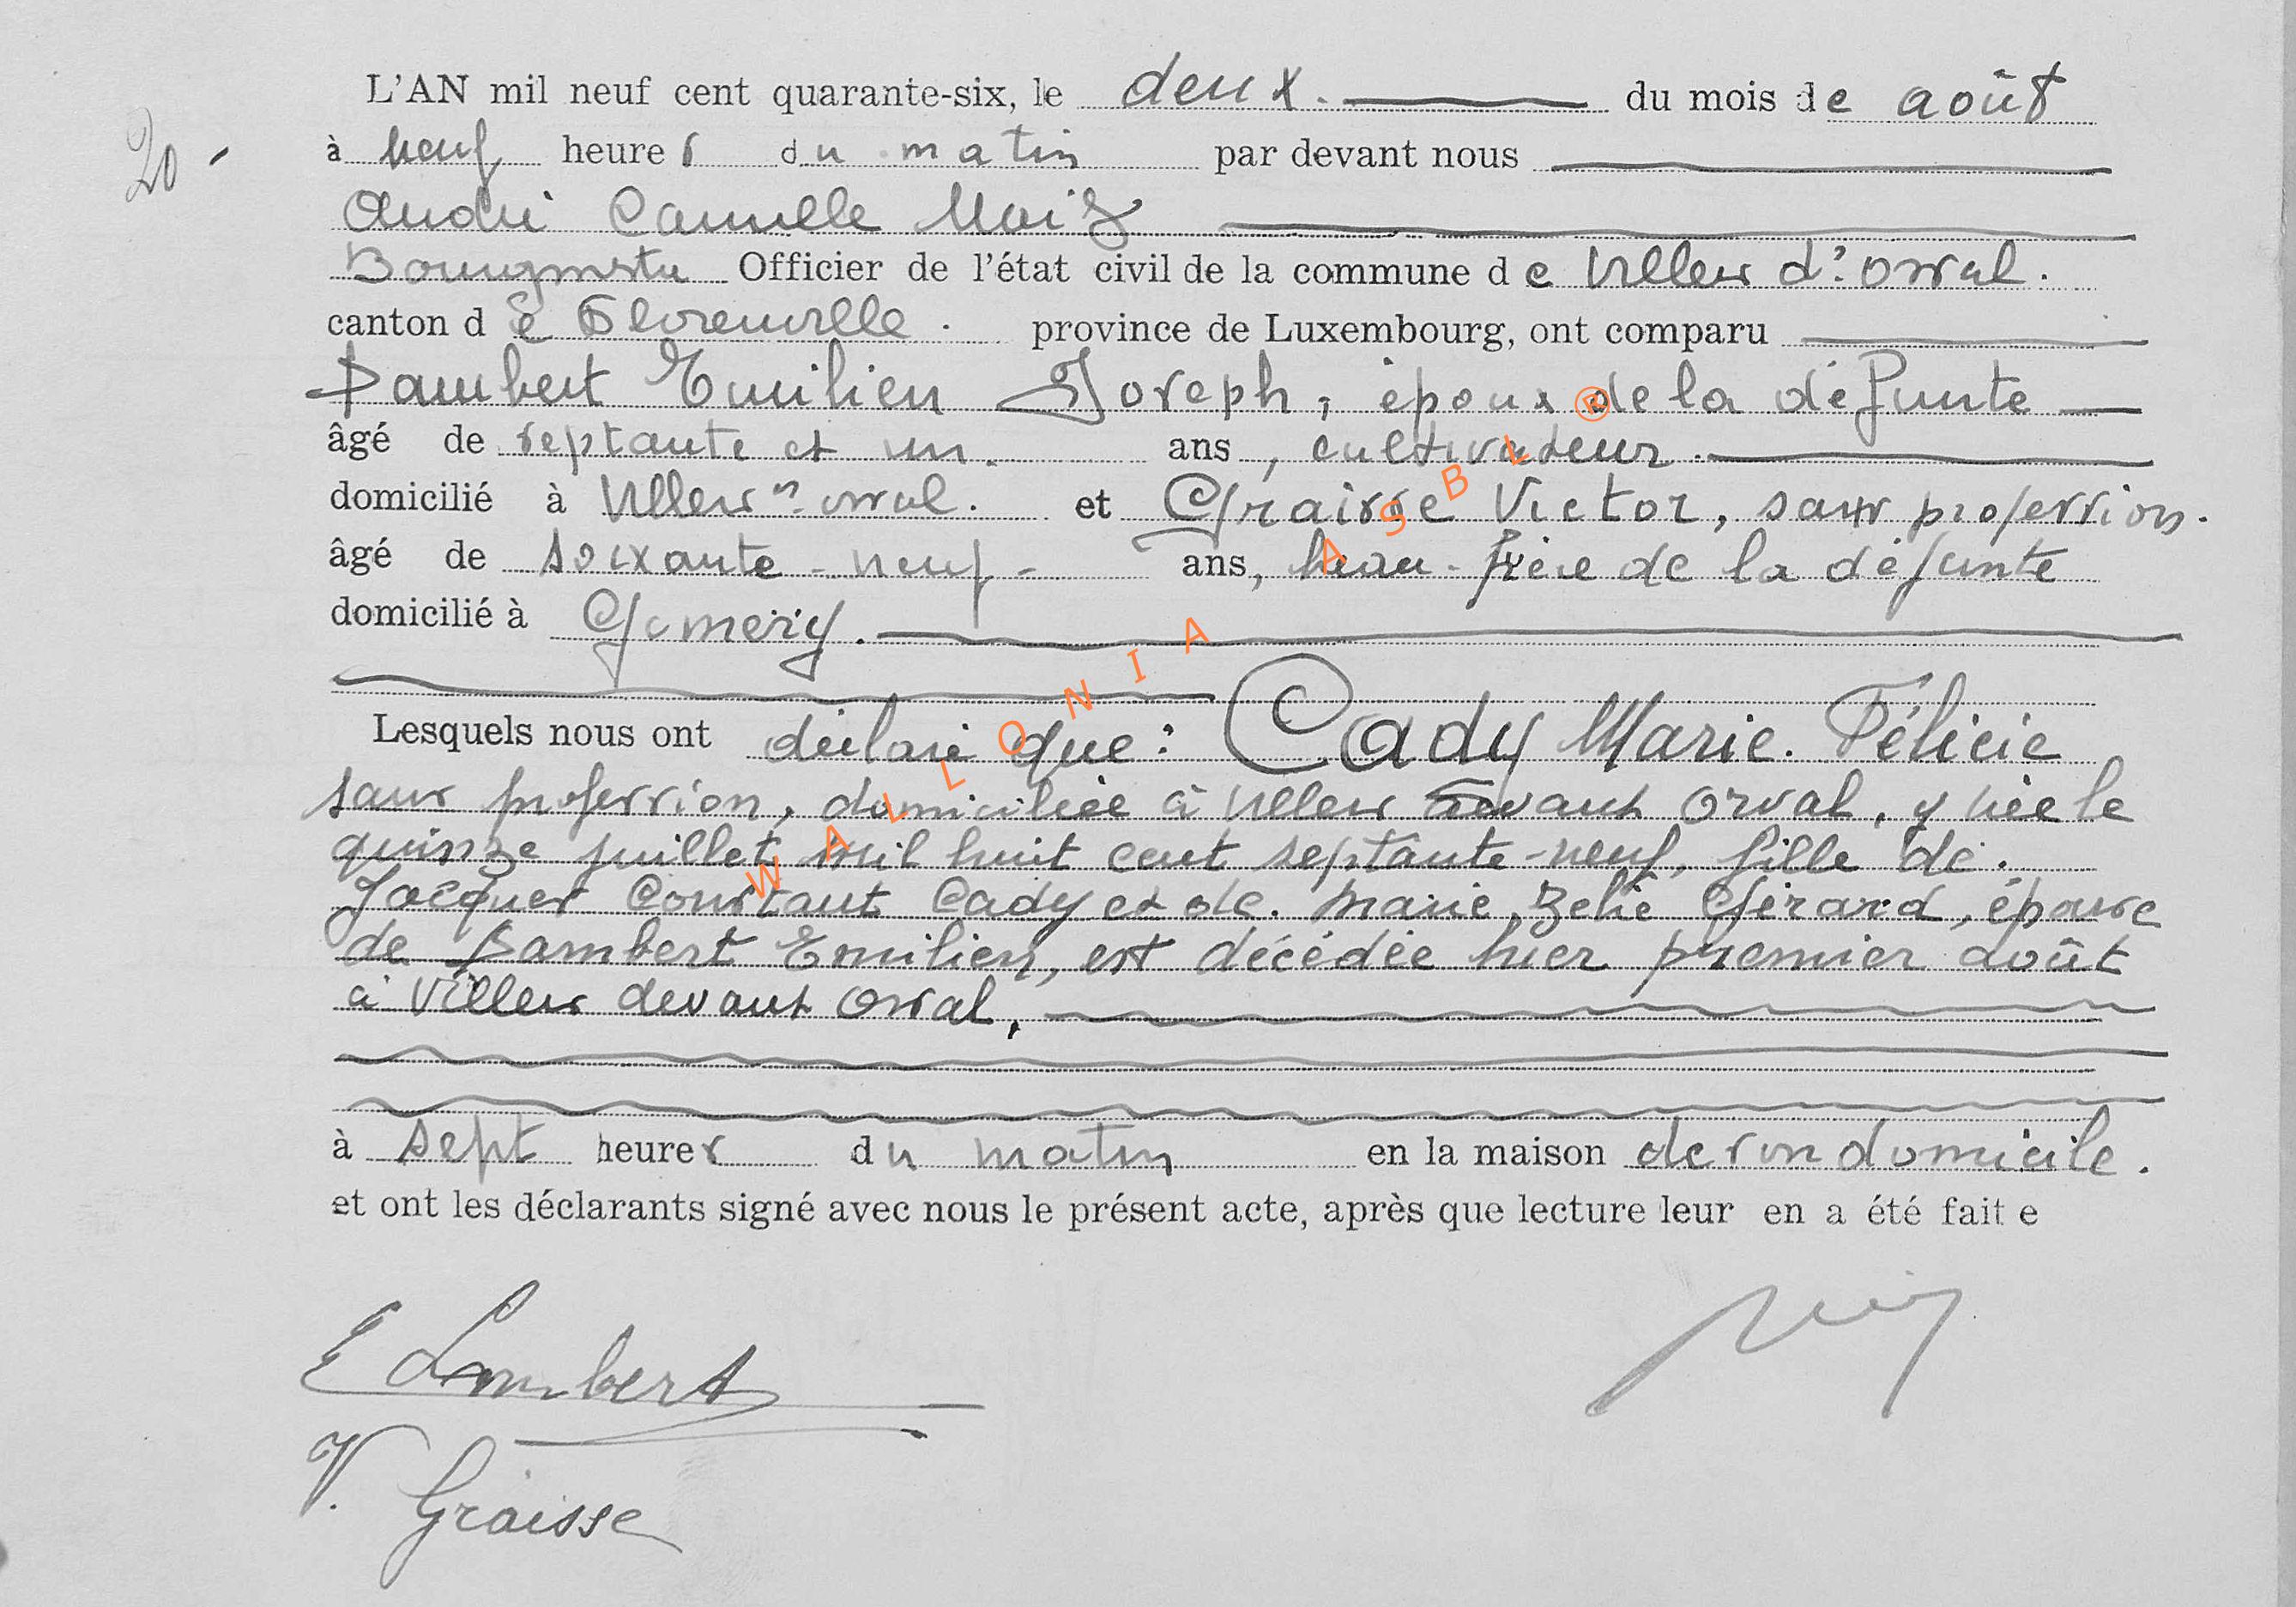 20 -
L'AN mil neuf cent quarante-six, le deux. du mois de août
à neuf heures du matin par devant nous
André Camille
Bourgmestre Officier de l'état civil de la commune de Villers d' orval.
canton de Florenville. province de Luxembourg, ont comparu
Lambert Emilien Joseph, époux de la défunte
âgé de septante et un. ans, cultivateur.
domicilié à Villers orval. et Graisse Victor, sans profession.
âgé de soixante-neuf - ans, beau-frère de la défunte
domicilié à Gomery.
Lesquels nous ont déclaré que: Cady Marie. Félicie
sans profession, domiciliée à Villers devant Orval, y née le
quinze juillet mil huit cent septante-neuf, fille de.
Jacques Constant Cady et de. Marie Zelie Gérard, épouse
de Lambert Emilien, est décédée hier premier août
à Villers devant Orval,
à sept heures du matin en la maison de son domicile.
et ont les déclarants signé avec nous le présent acte, après que lecture leur en a été faite
E Lambert
V. Graisse
WALLONIA ASBL ®